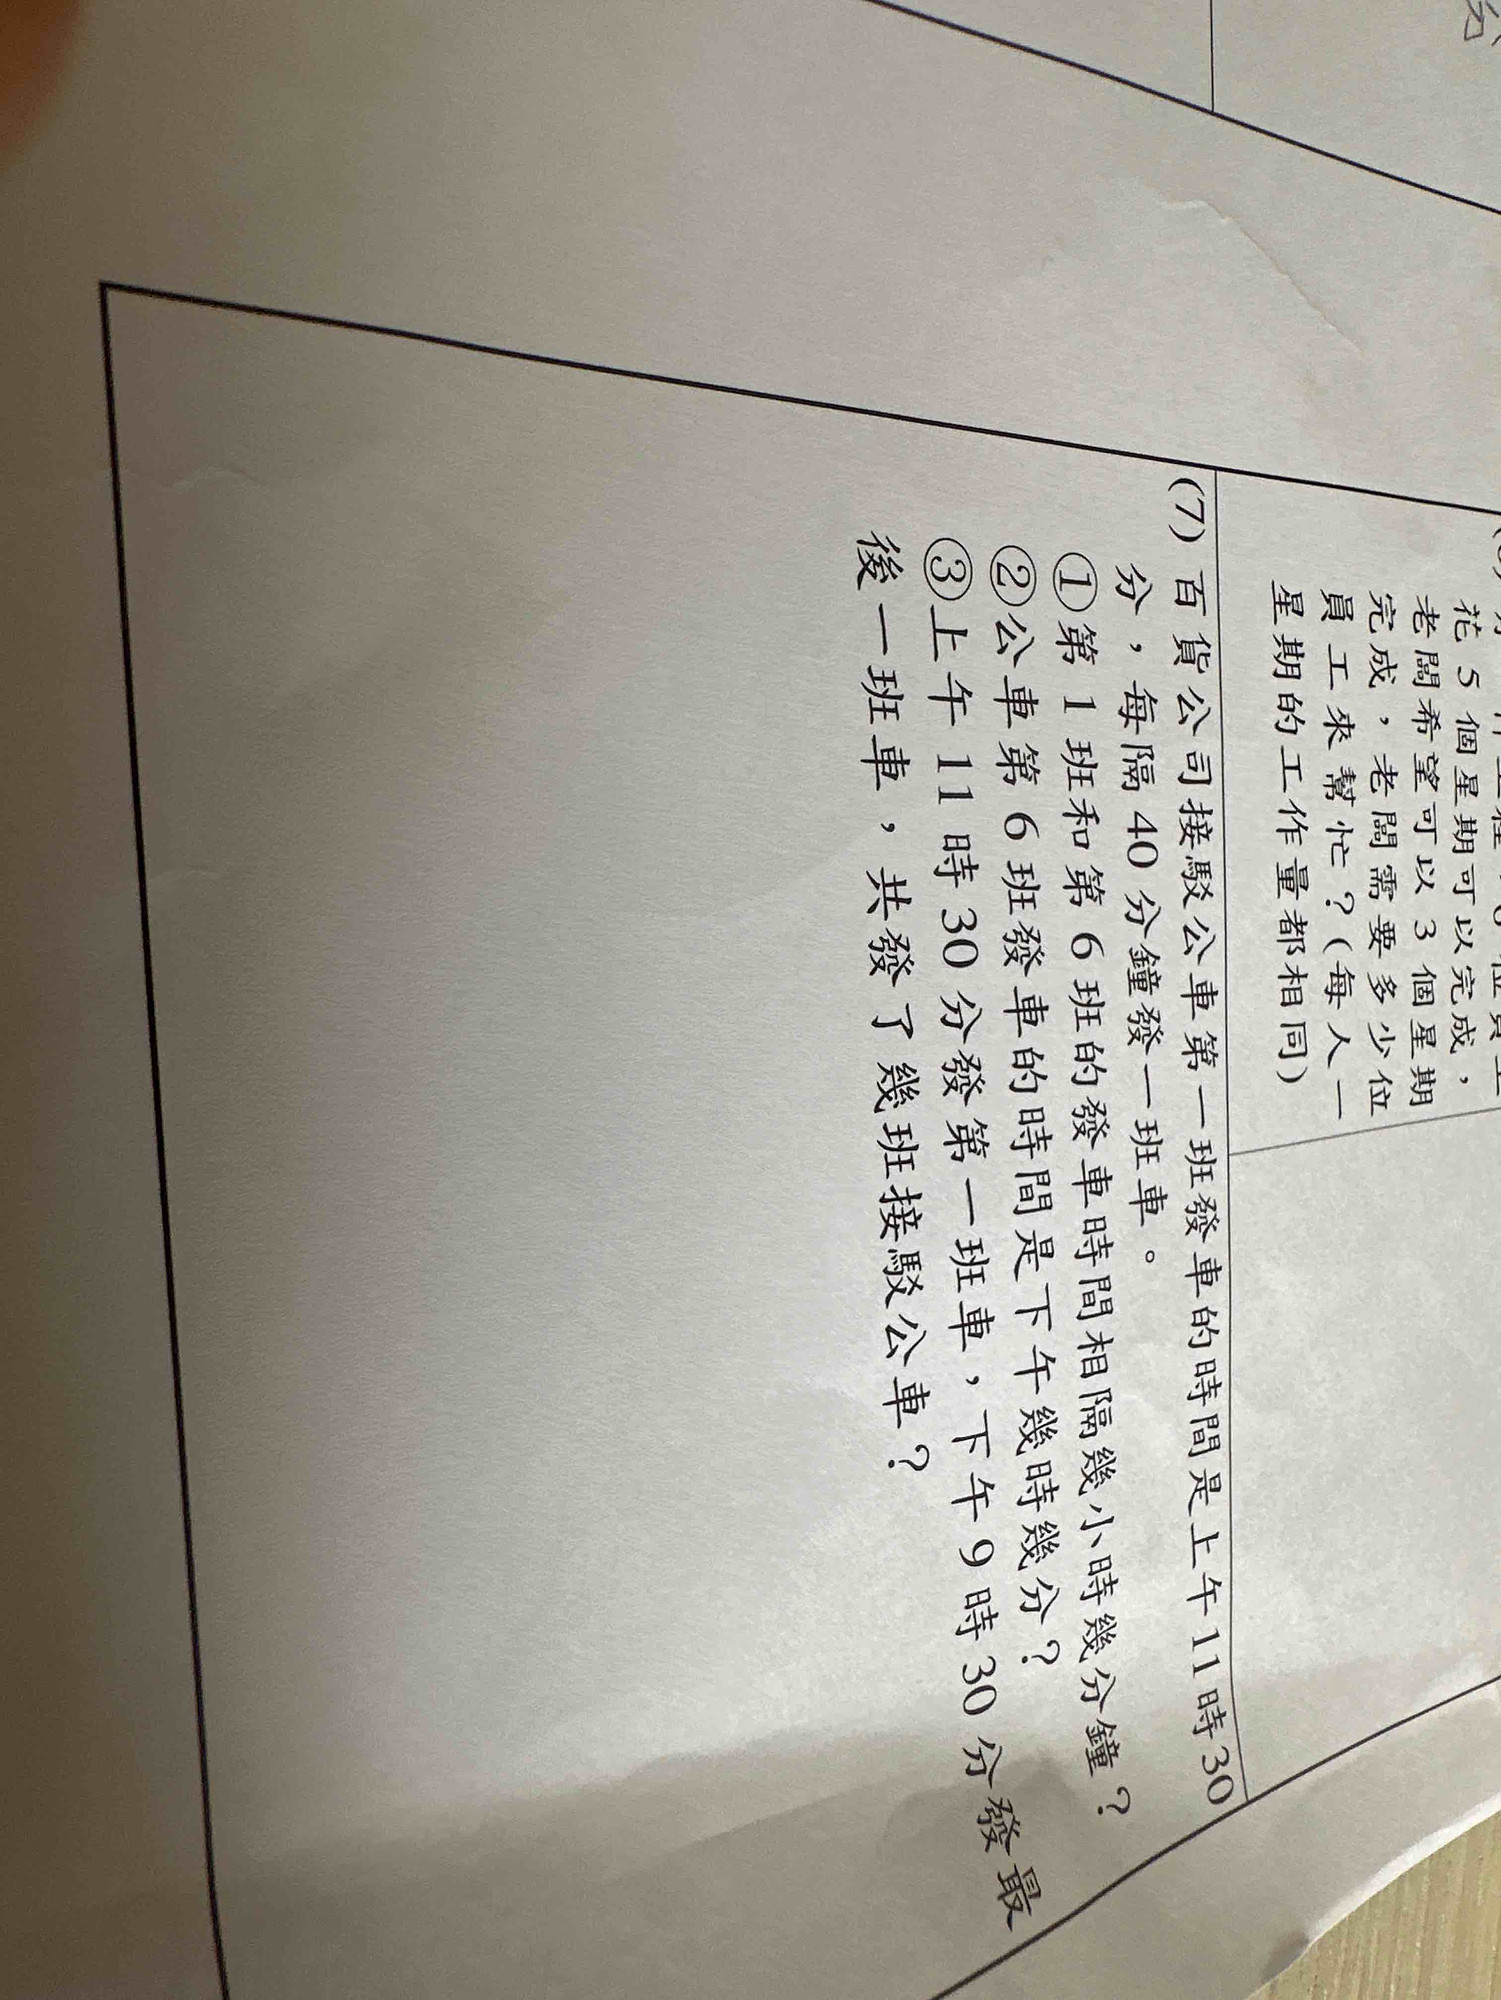 分
花 5 個星期可以完成，
老闆希望可以 3 個星期
完成，老闆需要多少位
員工來幫忙？(每人一
星期的工作量都相同)
(7) 百貨公司接駁公車第一班發車的時間是上午11時30
分，每隔 40 分鐘發一班車。
①第 1 班和第 6 班的發車時間相隔幾小時幾分鐘？
②公車第 6 班發車的時間是下午幾時幾分？
③上午 11 時 30 分發第一班車，下午 9 時 30 分發最
後一班車，共發了幾班接駁公車？